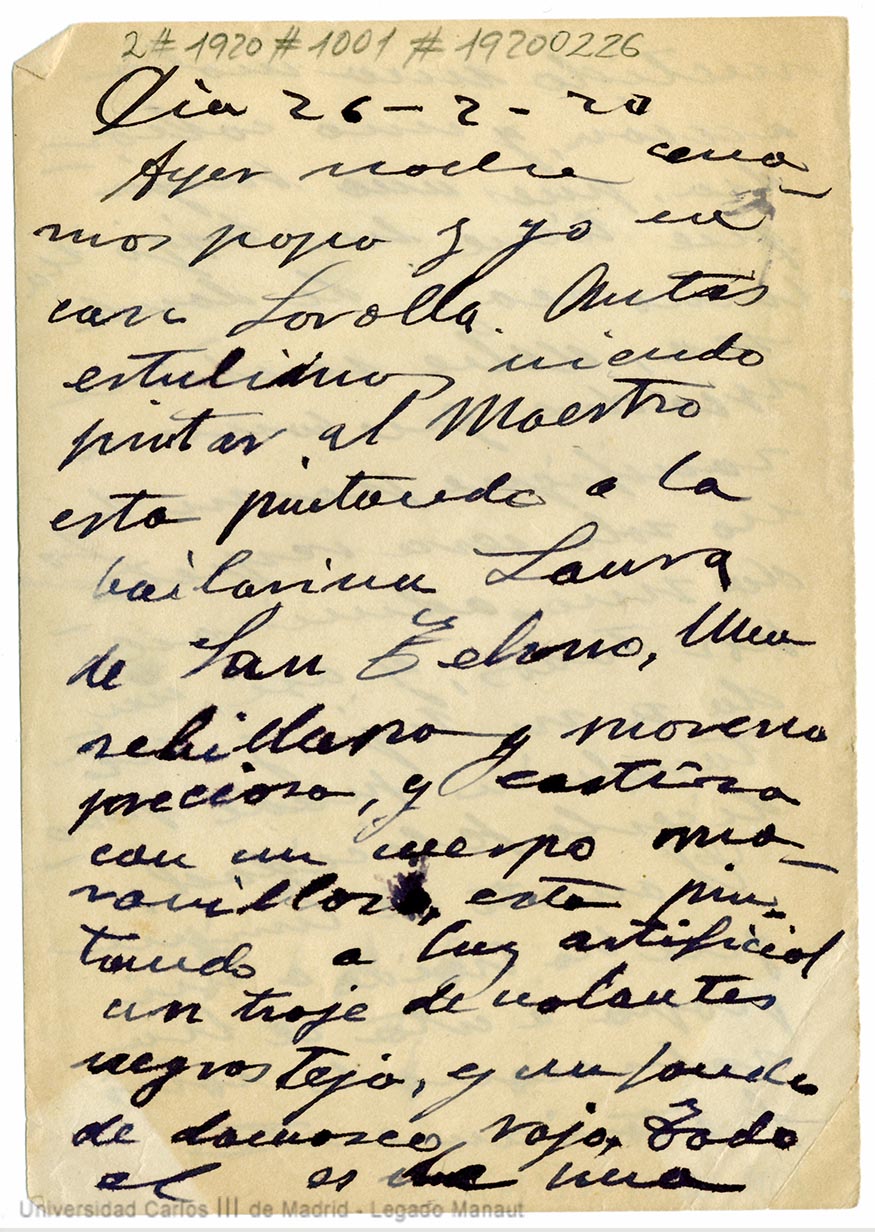 2 # 1920 # 1001 # 19200226
Dia 26 - 2 - 20
Ayer noche cena-
mos papa y yo en
casa Sorolla. Antes
estubimos viendo
pintar al Maestro
esta pintando a la
bailarina Laura
de San Telmo, una
sebillana y morena
preciosa, y castiza
con un cuerpo ma-
ravilloso, esta pin-
tando a luz artificial
un traje de volantes
negros teja, y un fondo
de damasco rojo. Todo
el es de una
Universidad Carlos III de Madrid - Legado Manaut